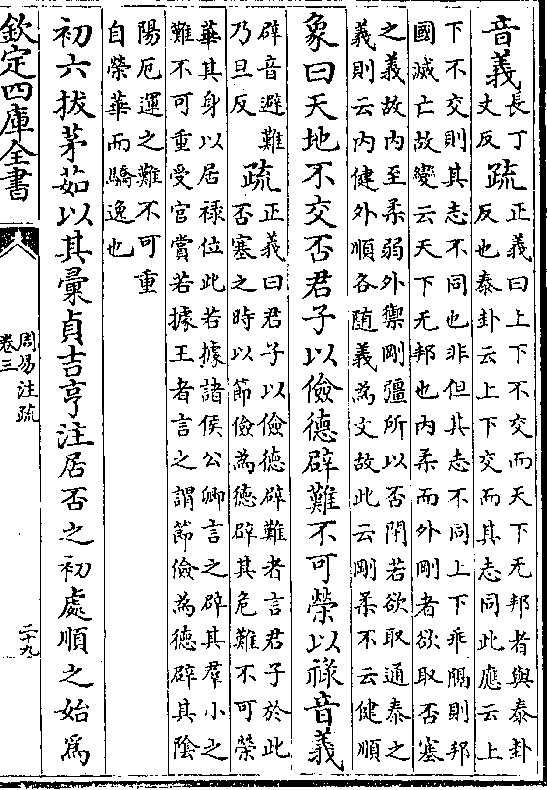 音義長丁丈反疏正義曰上下不交而天下无邦者與泰卦
反也泰卦云上下交而其志同此應云上
下不交則其志不同也非但其志不同上下乖隔則邦
國滅亡故變云天下无邦也内柔而外剛者欲取否塞
之義故内至柔弱外禦剛彊所以否閉若欲取通泰之
義則云内健外順各随義為文故此云剛柔不云健順
象曰天地不交否君子以儉德辟難不可榮以祿音義
辟音避難乃旦反疏正義曰君子以儉德辟難者言君子於此
否塞之時以節儉為德辟其危難不可榮
華其身以居禄位此若據諸侯公卿言之辟其羣小之
難不可重受官賞若據王者言之謂節儉為德辟其陰
陽厄運之難不可重
自榮華而驕逸也
初六拔茅茹以其彙貞吉亨注居否之初處順之始為
欽定四庫全書
周易注疏
卷三
二十九